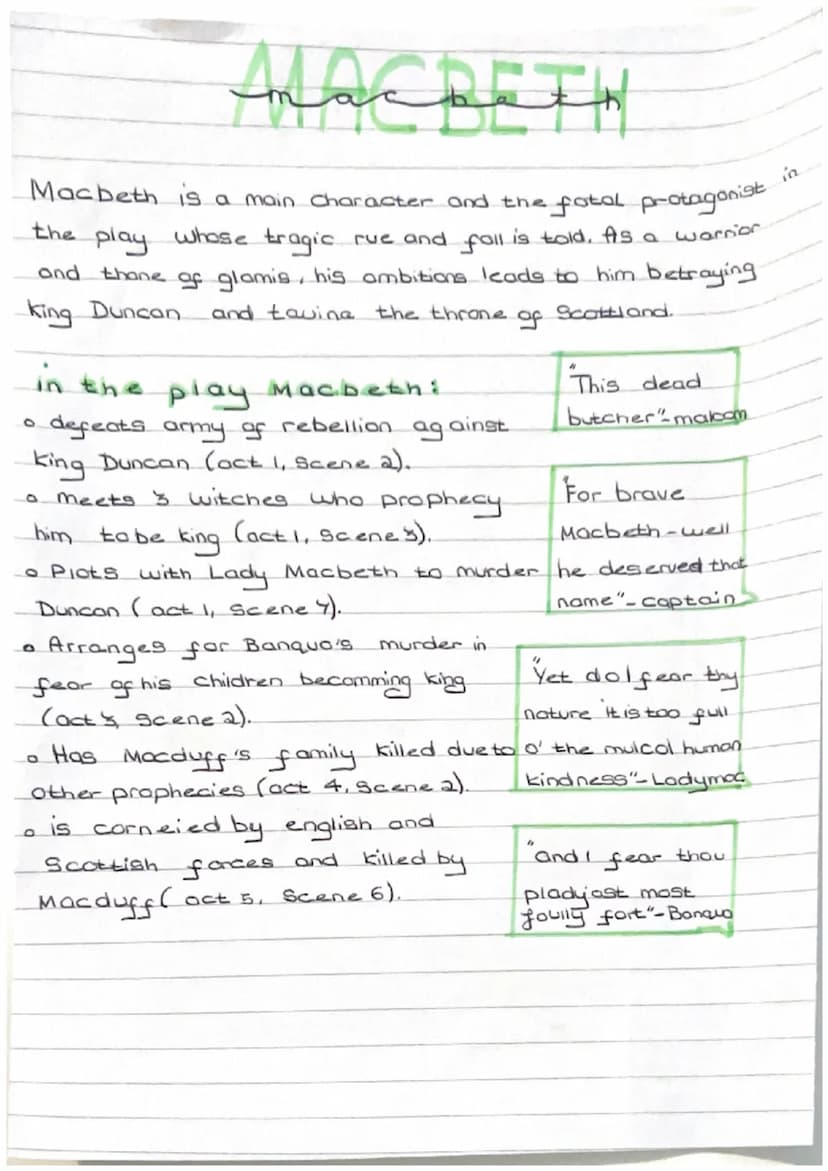 MACBETH
macbeth
Macbeth is a main character and the fatal protagonist in
the play whose tragic rue and fall is told. As a warrior
and thane of glamis, his ambitions leads to him betraying
king Duncan and tauina the throne of Scottland.
in the play Macbeth:
o defeats army of rebellion against
king Duncan (act 1, scene 2).
o meets 3 witches who prophecy
him to be king (act 1, scene 3).
o Plots with Lady Macbeth to murder
Duncan (act 1, scene 4).
o Arranges for Banquo's murder in
fear of his children becomming king
(act 3, scene 2).
o Has Macduff's family killed due to
other prophecies (act 4, scene 2).
o is corneied by english and
Scottish forces and killed by
Macduff( act 5, scene 6).
"This dead
butcher"-malcom
"For brave
Macbeth-well
he deserved that
name"-captain
"Yet do I fear thy
nature it is too full
o' the mulcol human
kindness"-Ladymac
"and I fear thou
pladyjast most
foully fort"-Banquo